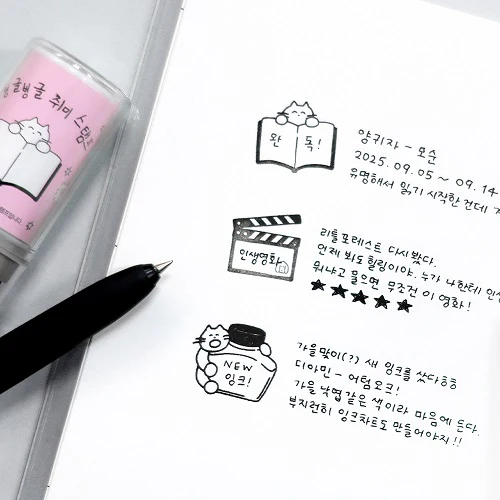 글벙글 취미 스탬프
완 독!
양귀자 - 모순
2025.09.05 ~ 09.14
유명해서 읽기 시작한 건데
인생영화
리틀포레스트 다시 봤다.
언제 봐도 힐링이야. 누가 나한테 인생
뭐냐고 물으면 무조건 이 영화!
NEW
잉크!
가을맞이(?) 새 잉크를 샀다ㅎㅎ
디아민 - 어텀오크!
가을 낙엽같은 색이라 마음에 든다.
부지런히 잉크차트도 만들어야지!!